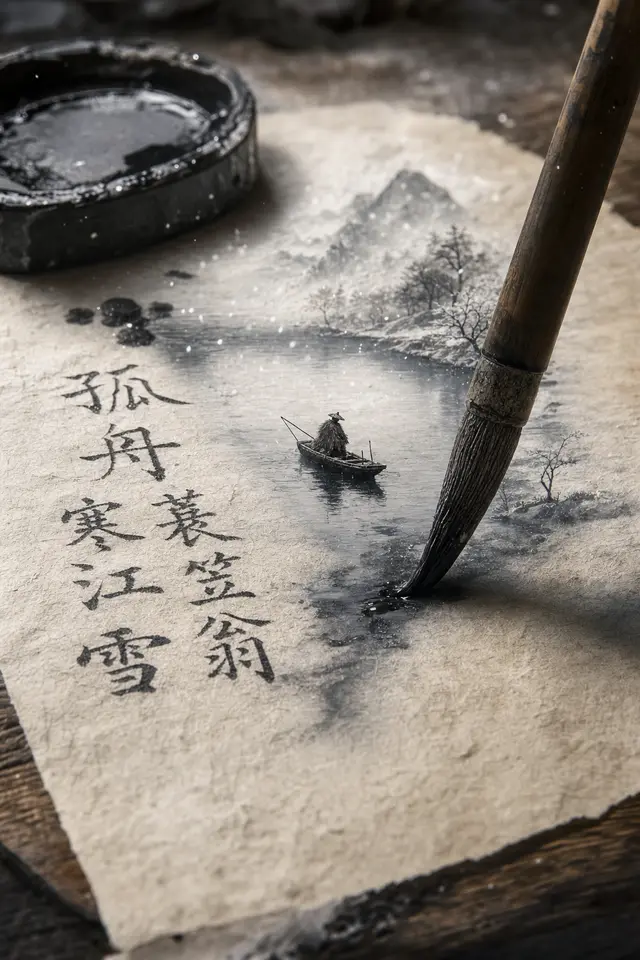 蓑笠翁
孤舟寒江雪